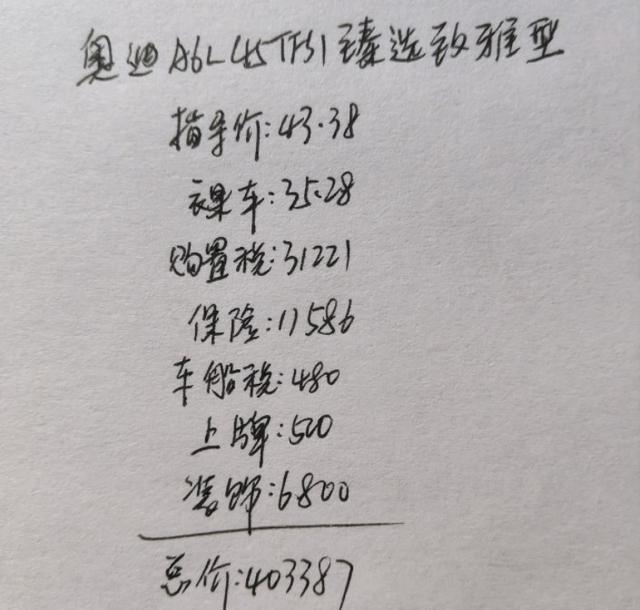 奥迪A6L45TFSI臻选致雅型
指导价:43.38
裸车:35.28
购置税:31221
保险:11586
车船税:480
上牌:500
装饰:6800
总价:403387